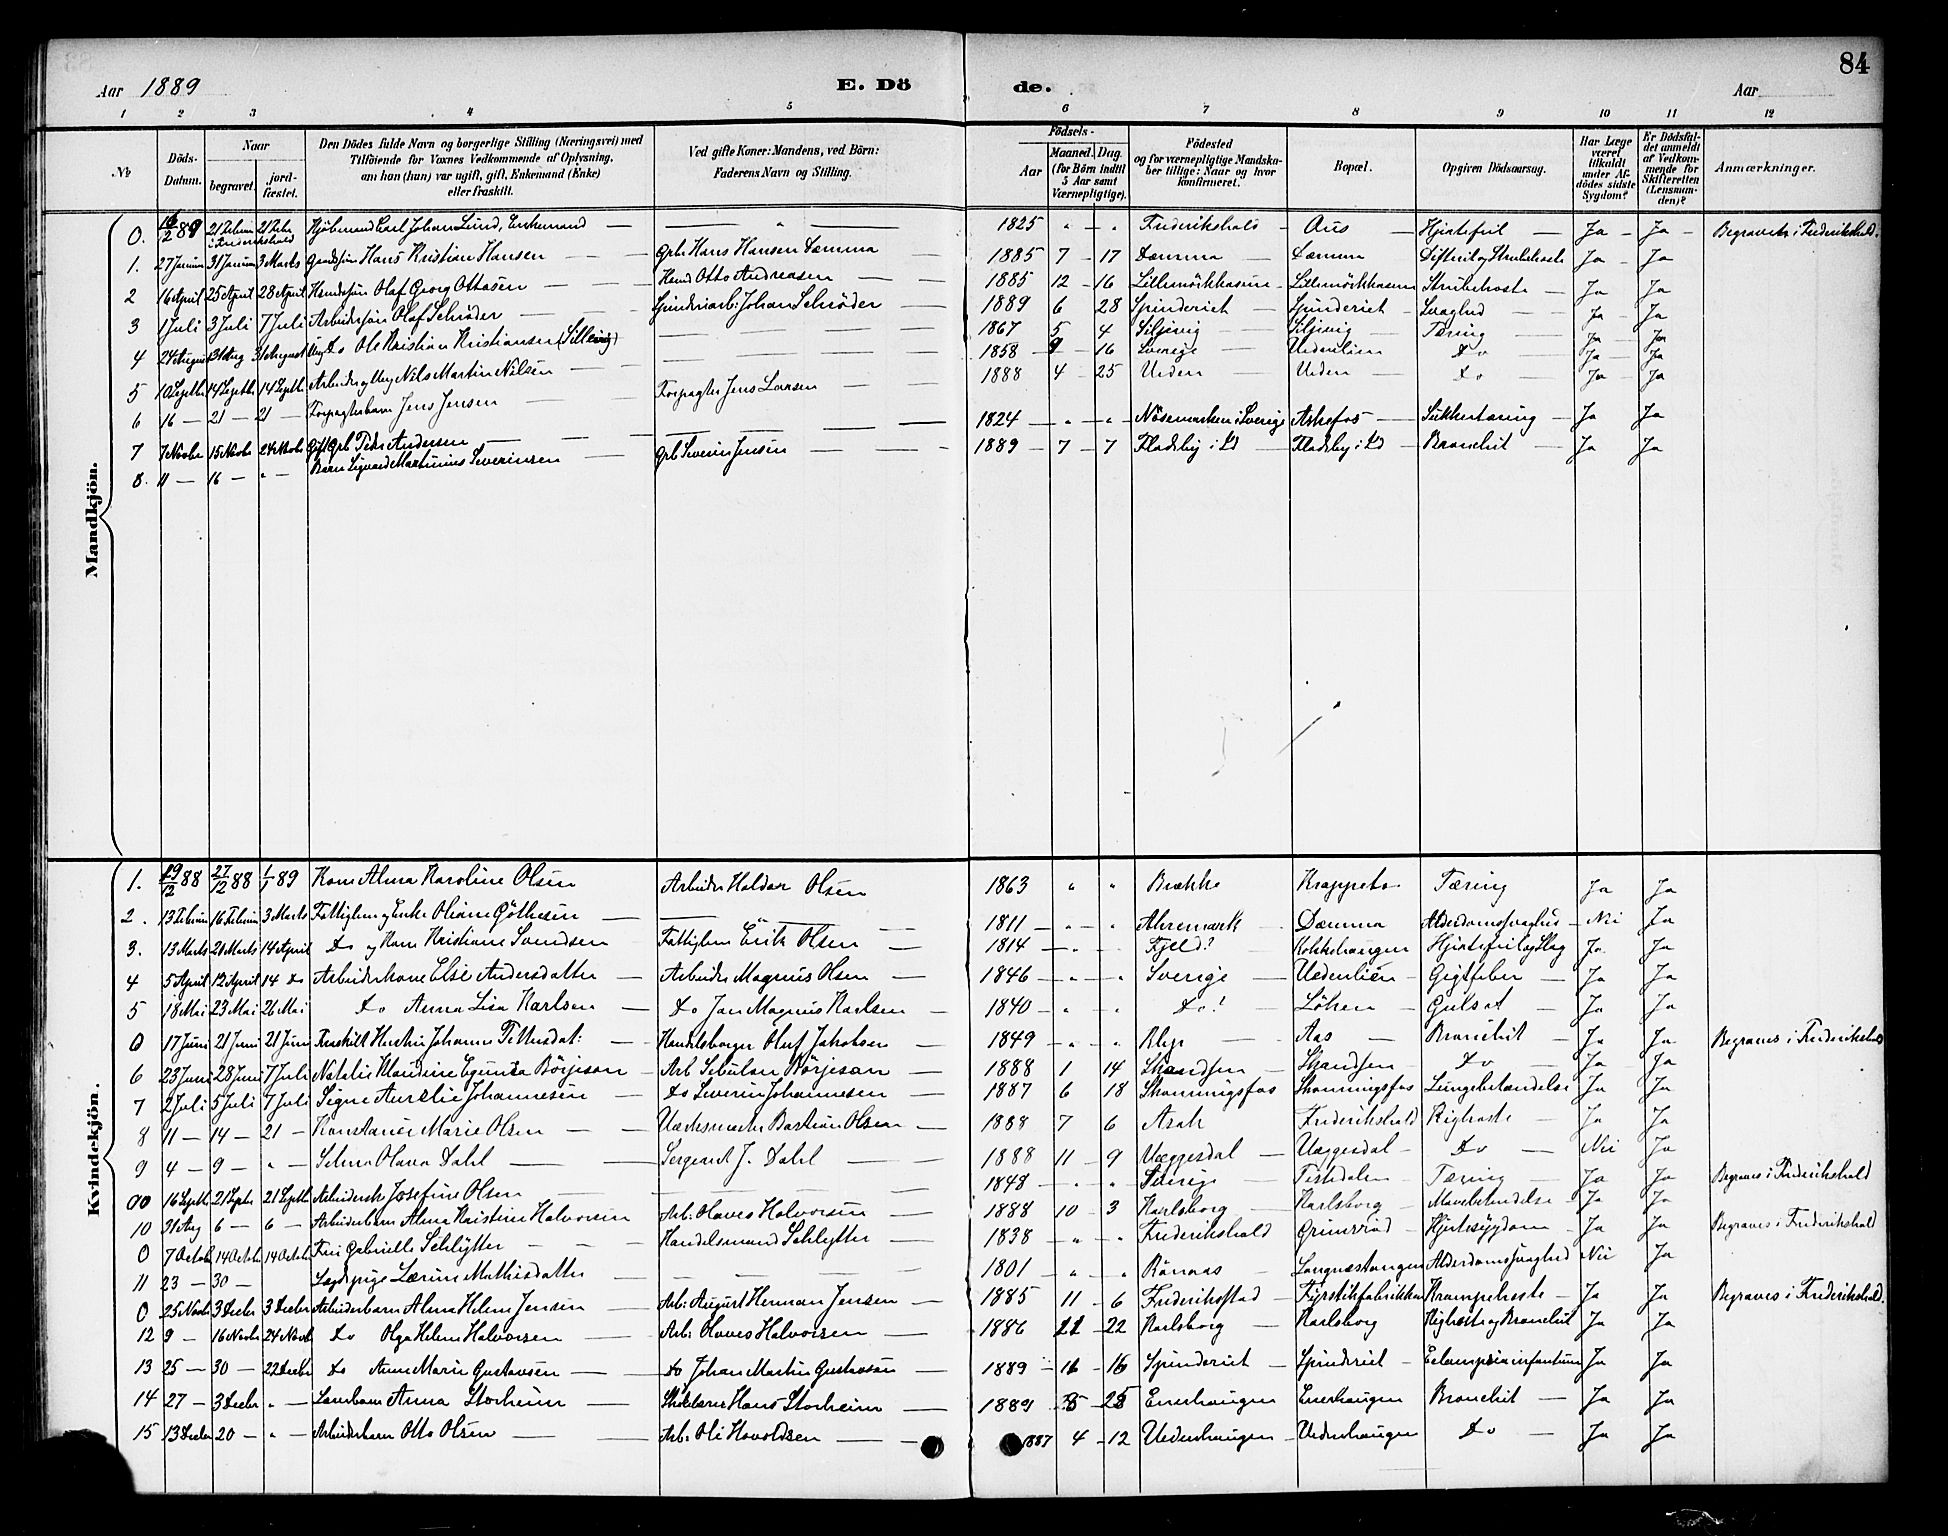 Aar 1889 E. Dö de. Aar 84
1 2 3 4 5 6 7 8 9 10 11 12
No
Döds-Datum.
Naar begravet. jord-fæstet.
Den Dödes fulde Navn og borgerlige Stilling (Næringsvei) med Tilföiende for Voxnes Vedkommende af Oplysning, om han (hun) var ugift, gift, Enkemand (Enke) eller fraskilt.
Ved gifte Koner: Mandens, ved Börn: Faderens Navn og Stilling.
Födsels-
Aar Maaned. Dag. (for Börn indtil 5 Aar samt Værnepligtige).
Födested og for værnepligtige Mandskaber tillige: Naar og hvor konfirmeret.
Bopæl.
Opgiven Dödsaarsag.
Har Læge været tilkaldt under Afdödes sidste Sygdom?
Er Dödsfaldet anmeldt af Vedkommende for Skifteretten (Lensmanden)?
Anmærkninger.
Mandkjön.
0. 16/12 88 21 Febr 21 Febr i Frederikshald Kjöbmand Carl Johan Lund, Enkemand — 1825 " " Frederikshald Aus Hjertefeil Ja Ja Begravet i Frederikshald.
1. 27 Januar 31 Januar 3 Marts Hans Kristian Hansen Gpbr Hans Hansen Dæmma 1885 7 17 Dæmma Dæmma Difterit og Strubehoste Ja Ja
2 16 April 25 April 28 April Olaf Georg Ottosen Otto Andreasen 1885 12 16 Strubehoste Ja Ja
3 1 Juli 3 Juli 7 Juli Arbeidersön Olaf Schröder Spinderiarb: Johan Schröder 1889 6 28 Spinderiet Spinderiet Svaghed Ja Ja
4 24 August 31 Aug 31 August Ung. Do Ole Kristian Kristiansen (Sillevig) 1867 5 4 Siljevig Siljevig Tæring Ja Ja
5 10 Septbr 14 Septbr 14 Septb Arbeider og Ung. Nils Martin Nilsen 1858 9 16 Sverige Vedenlien Do Ja Ja
6 16 — 21 — 21 — Forpagterbarn Jens Jensen Forpagter Jens Larsen 1888 4 25 Veden Veden Do Ja Ja
7 7 Novbr 15 Novbr 24 Novbr Gift Gpb Peder Andersen 1824 " " Nössemarken i Sverige Askefos Sukkertæring Ja Ja
8. 11 — 16 — " — Barn Sigvard Martinius Severinsen Gpb Severin Jensen 1889 7 7 Fladeby i Id Fladeby i Id Bronchit Ja Ja
Kvindekjön.
1. 19/12 88 27/12 88 1/1 89 Kone Alma Karoline Olsen Arbeider Haldor Olsen 1863 " " Brække Krappeto Tæring Ja Ja
2. 13 Februar 16 Februar 3 Marts Fattiglem og Enke Oliane Göthesen 1811 " " Ahremark Dæmma Alderdomssvaghed Nei Ja
3. 13 Marts 21 Marts 14 April Do og Kone Kristiane Svendsen Fattiglem Erik Olsen 1814 " " Fjeld? Kokkehaugen Hjertefeil og Slag Ja Ja
4 5 April 12 April 14 Do Arbeiderkone Else Andersdatter Arbeider Magnus Olsen 1846 " " Sverige Vedenlien Gigtfeber Ja Ja
5 18 Mai 23 Mai 26 Mai Do Anna Lisa Karlsen Do Jan Magnus Karlsen 1840 " " Do? Löken Gulsot Ja Ja
0 17 Juni 21 Juni 21 Juni Fraskilt Hustru Johanne Pettersdat: Handelsborger Oluf Jakobsen 1849 " " Klep Aas Bronchit Ja Ja Begraves i Frederikshald
6 23 Juni 28 Juni 7 Juli Natalie Klaudine Eginda Börjeson Arb Sebulon Börjeson 1888 1 14 Skandsen Skandsen Do Ja Ja
7 2 Juli 5 Juli 7 Juli Signe Aurelie Johannesen Do Severin Johannesen 1887 6 18 Skonningsfos Skonningsfos Lungebetændelse Ja Ja
8 11 — 14 — 21 — Konstance Marie Olsen Bastian Olsen 1888 7 6 Asak Frederikshald Kighoste Ja Ja
9 4 — 9 — " — Selma Olava Dahl Sergeant J. Dahl 1888 11 9 Væggesdal Væggesdal Do Nei Ja
00 16 Septb 21 Septbr 21 Septb Josefine Olsen 1848 " " Sverige Tistedalen Tæring Ja Ja Begraves i Frederikshald
10 31 Aug 6 — 6 — Arbeiderbarn Alma Kristine Halvorsen Arb: Olaves Halvorsen 1888 10 3 Karlsborg Karlsborg Mavebetændelse Ja Ja
0 7 Octob 14 Octbr 14 Octbr Gabrielle Schlytter Handelsmand Schlytter 1838 " " Frederikshald Grimsröd Hjertesygdom Ja Ja Begraves i Frederikshald
11 23 — 30 — Mathisdatter 1801 " " Rönaas Alderdomssvaghed Nei Ja
0 25 Novbr 3 Decbr 3 Decbr Arbeiderbarn Alma Helene Jensen Arb: August Herman Jensen 1885 11 6 Frederikstad Fyrstikfabrikken Krampehoste Ja Ja Begraves i Frederikshald.
12 9 — 16 Novbr 24 Novb Do Olga Helene Halvorsen Arb: Olaves Halvorsen 1886 11 22 Karlsborg Karlsborg Kighoste og Bronchit Ja Ja
13 25 — 30 — 22 Decbr Do Anne Marie Gustavsen Do Johan Martin Gustavsen 1889 11 16 Spinderiet Spinderiet Eclampsia infantum Ja Ja
14 27 — 3 Decbr " — Anna Storheim Hans Storheim 1889 5 25 Enerhaugen Enerhaugen Bronchit Ja Ja
15 13 Decbr 20 — " — Arbeiderbarn Otto Olsen Arb: Ole Havoldsen 1887 4 12 Vedenhaugen Vedenhaugen Do Ja Ja